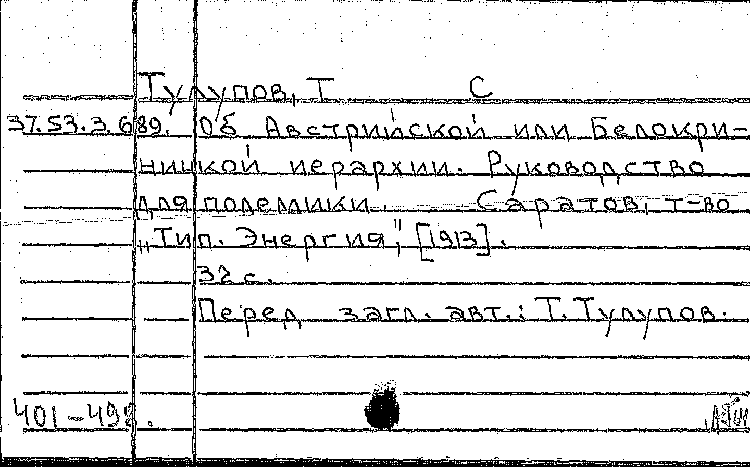 Тулупов, Т С
37.53.3.689. Об Австрийской или Белокри-
ницкой иерархии. Руководство
для полемики. Саратов, т-во
„Тип. Энергия", [1913].
32 с.
Перед загл. авт.: Т. Тулупов.
401-498.